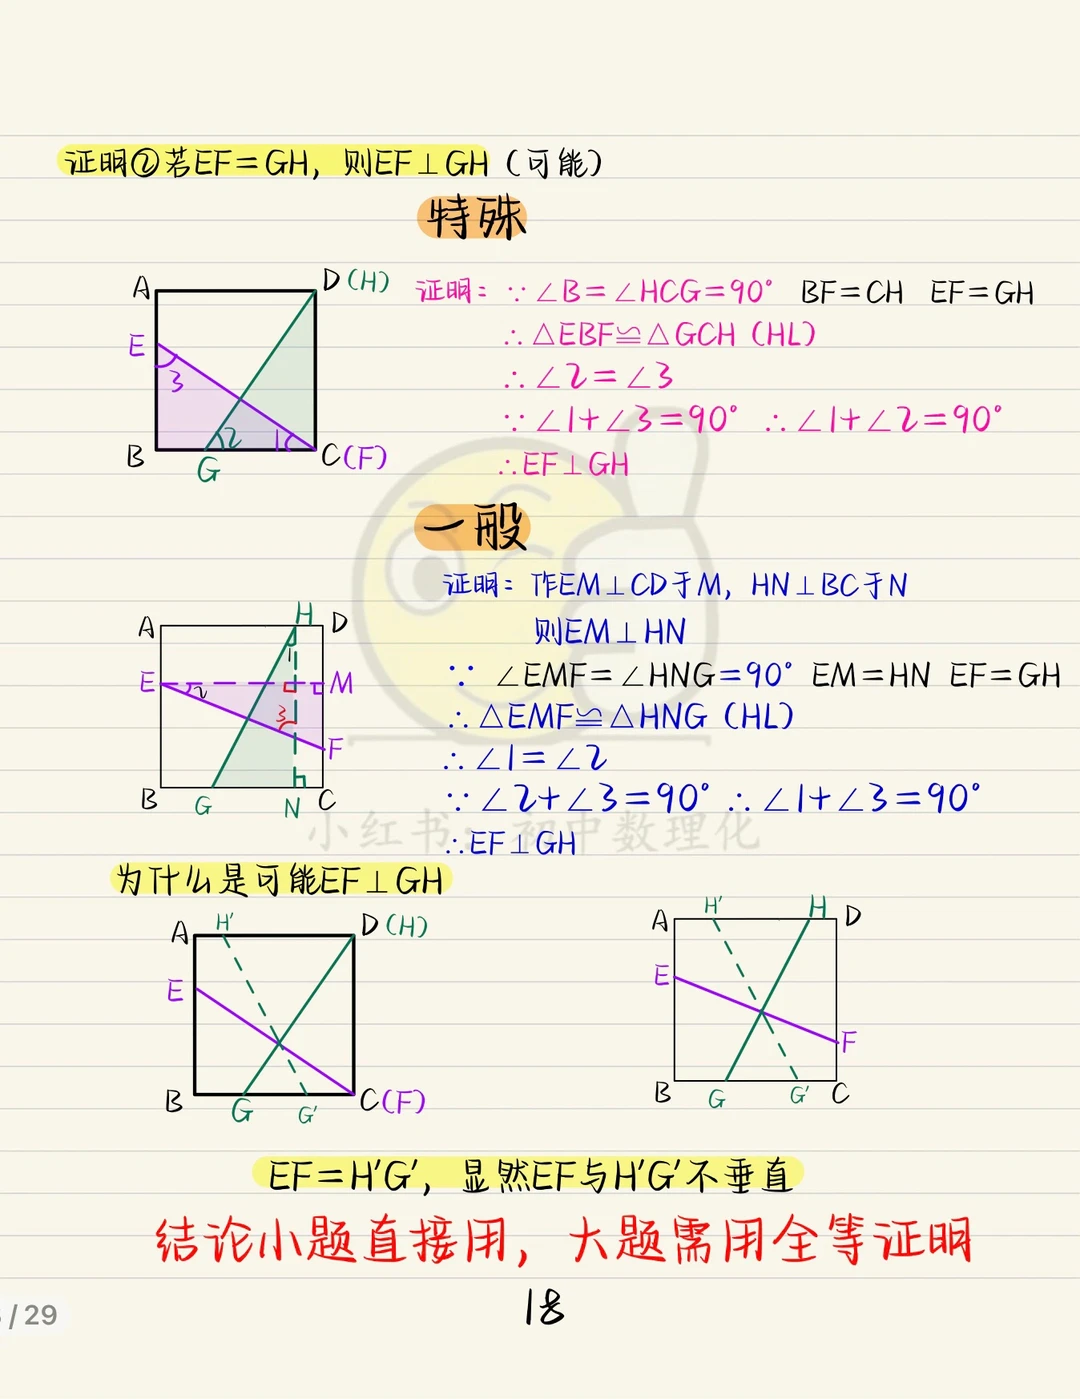 证明②若EF=GH，则EF⊥GH（可能）
特殊
A D(H)
E
3
2 1
B G C(F)
证明：∵∠B=∠HCG=90° BF=CH EF=GH
∴△EBF≌△GCH（HL）
∴∠2=∠3
∵∠1+∠3=90° ∴∠1+∠2=90°
∴EF⊥GH
一般
证明：作EM⊥CD于M，HN⊥BC于N
则EM⊥HN
∵ ∠EMF=∠HNG=90° EM=HN EF=GH
∴△EMF≌△HNG（HL）
∴∠1=∠2
∵∠2+∠3=90° ∴∠1+∠3=90°
∴EF⊥GH
A H D
1
E 2 M
3
F
B G N C
小红书：初中数理化
为什么是可能EF⊥GH
A H' D(H)
E
B G G' C(F)
A H' H D
E
F
B G G' C
EF=H'G'，显然EF与H'G'不垂直
结论小题直接用，大题需用全等证明
18
/29